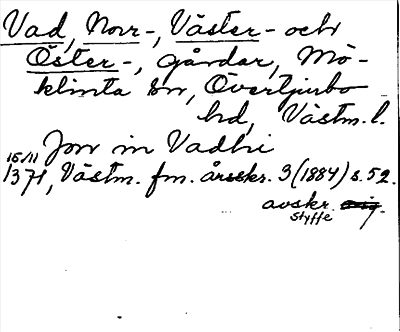 Vad, Norr-, Väster- och
Öster-, gårdar, Mö-
klinta sn, Övertjurbo
hd, Västm. l.
Jon in Vadhi
15/11
1371, Västm. fm. årsskr. 3 (1884) s. 52.
avskr. orig.
Styffe